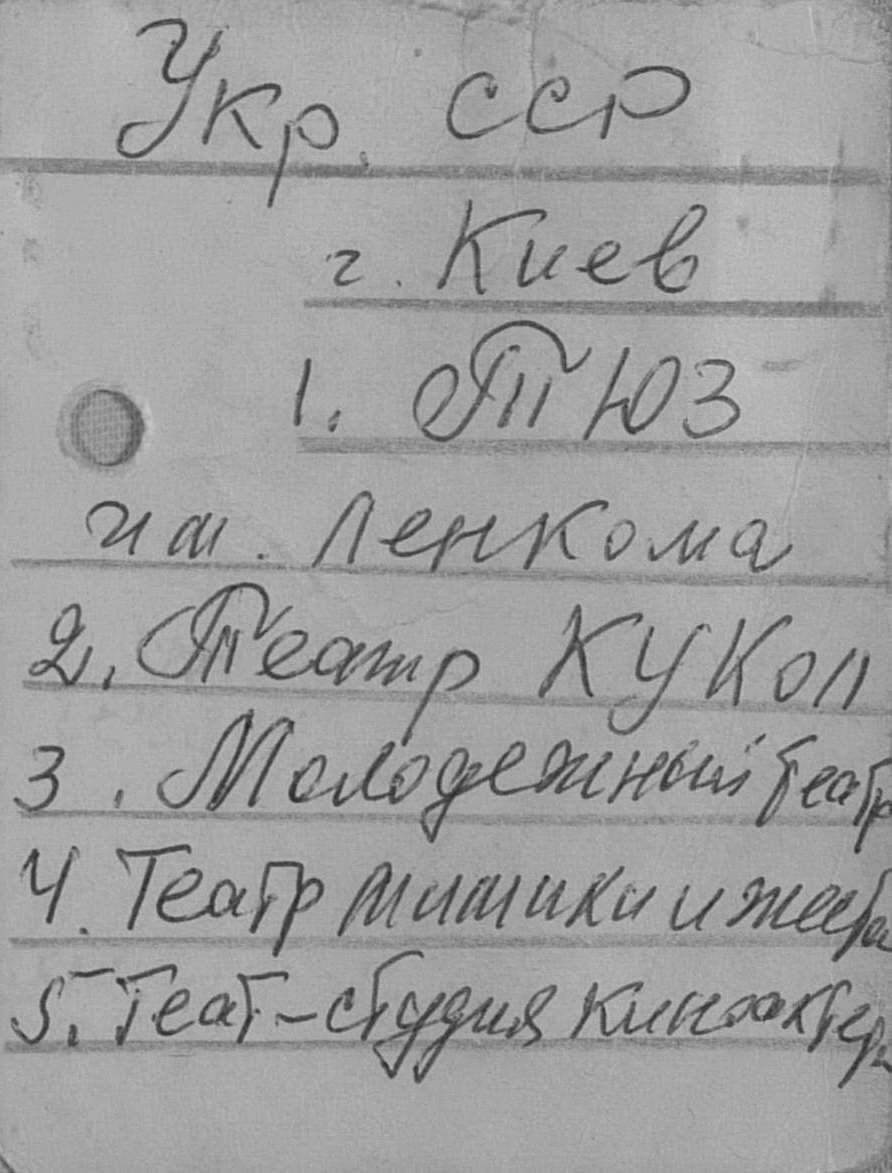 Укр. ССР
г. Киев
1. ТЮЗ
им. Ленкома
2. Театр КУКОЛ
3. Молодежный театр
4. Театр мимики и жеста
5. Театр-студия киноактера